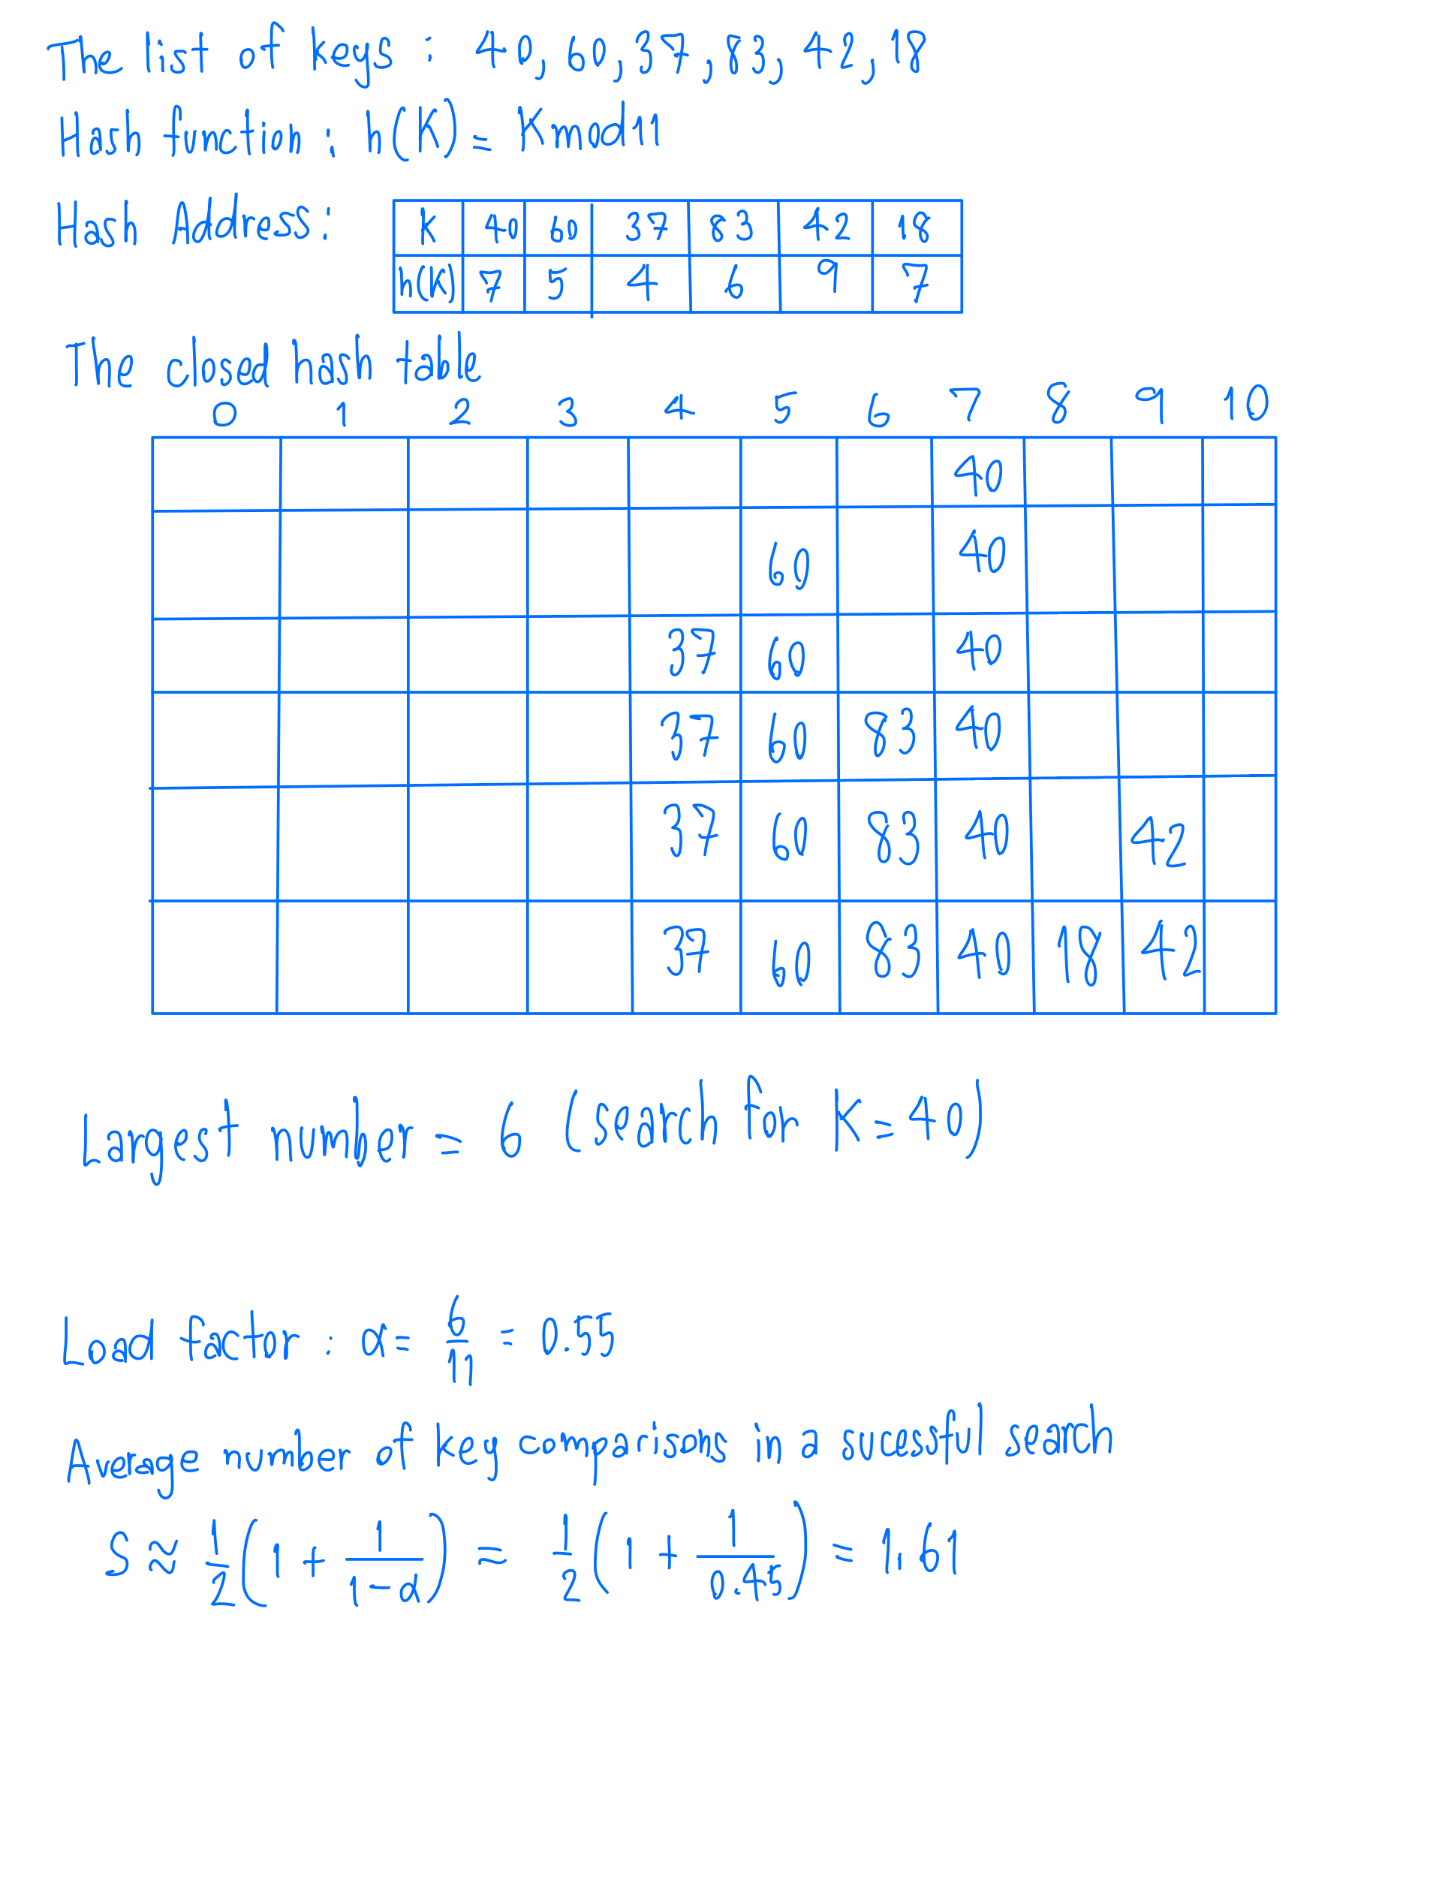 The list of keys : 40, 60, 37, 83, 42, 18
Hash function : h(K) = K mod 11
Hash Address :
K 40 60 37 83 42 18
h(K) 7 5 4 6 9 7
The closed hash table
0 1 2 3 4 5 6 7 8 9 10
40
60 40
37 60 40
37 60 83 40
37 60 83 40 42
37 60 83 40 18 42
Largest number = 6 (search for K = 40)
Load factor : α = 6/11 = 0.55
Average number of key comparisons in a sucessful search
S ≈ 1/2 (1 + 1/(1-α)) = 1/2 (1 + 1/0.45) = 1.61